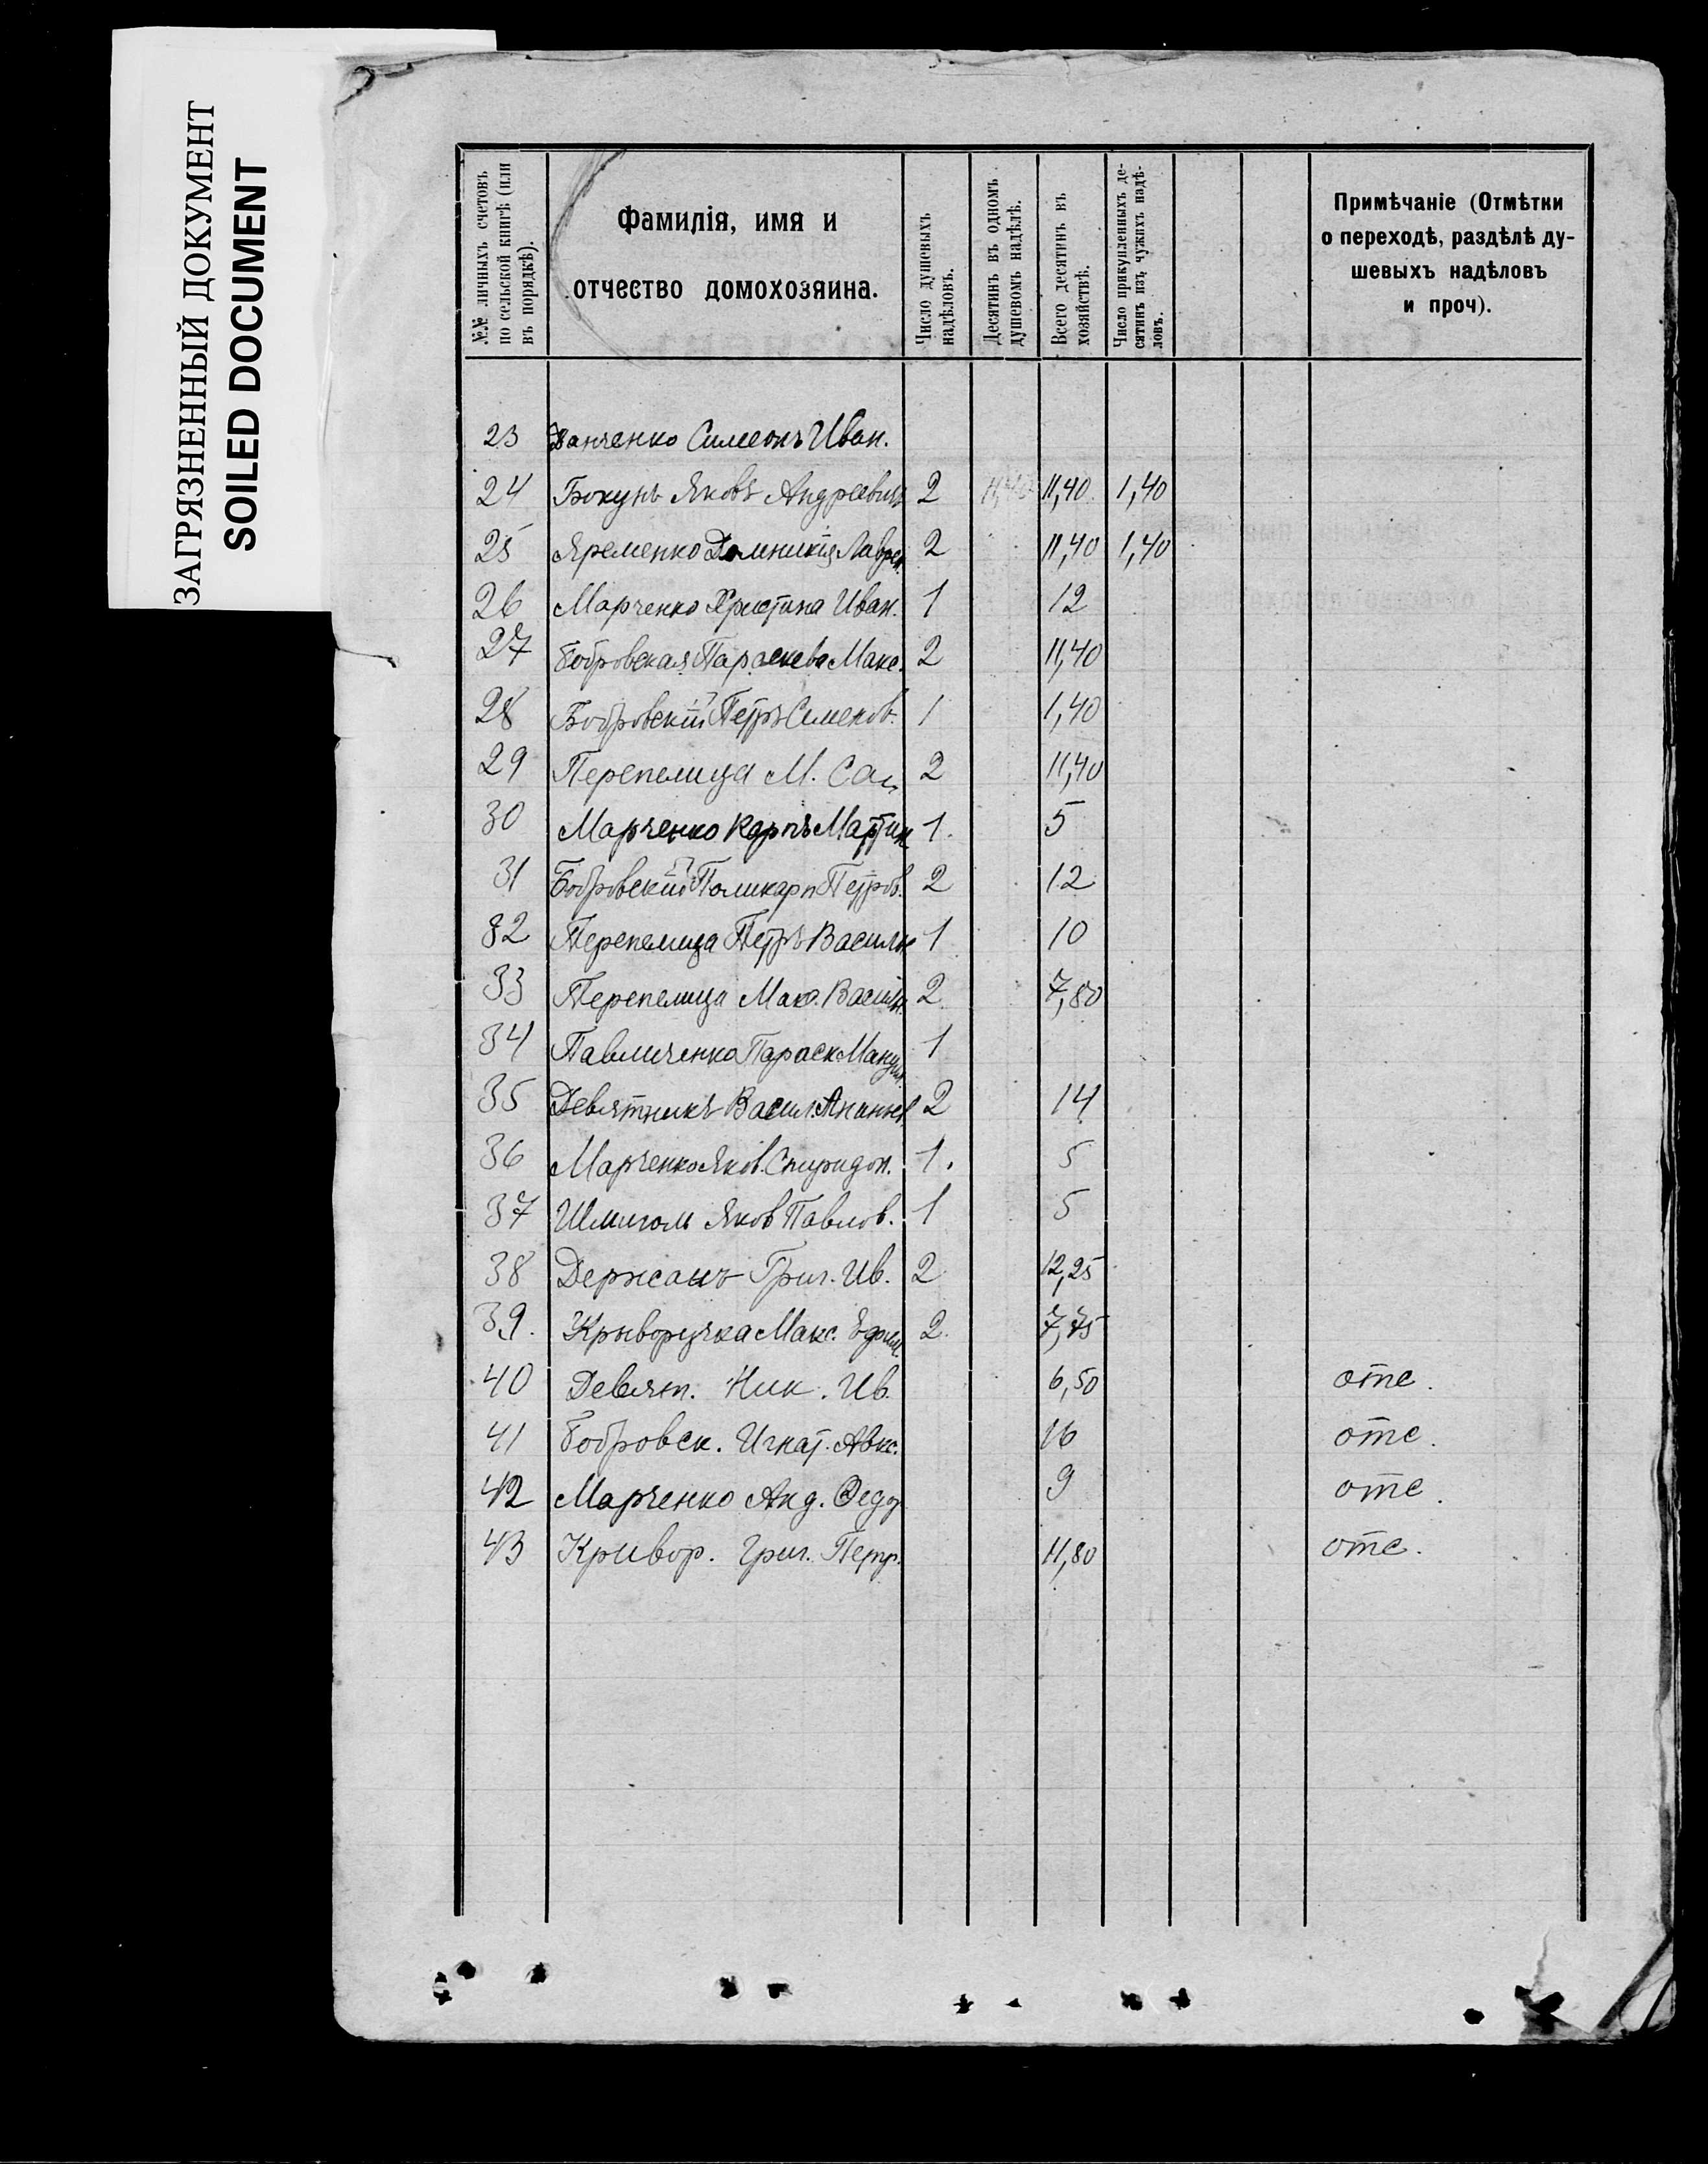 ЗАГРЯЗНЕННЫЙ ДОКУМЕНТ
SOILED DOCUMENT
№№ личныхъ счетовъ
по сельской книгѣ (или
въ порядкѣ).
Фамилія, имя и
отчество домохозяина.
Число душевыхъ
надѣловъ.
Десятинъ въ одномъ
душевомъ надѣлѣ.
Всего десятинъ въ
хозяйствѣ.
Число прикупленныхъ де-
сятинъ изъ чужихъ надѣ-
ловъ.
Примѣчаніе (Отмѣтки
о переходѣ, раздѣлѣ ду-
шевыхъ надѣловъ
и проч).
23 Данченко Симеонъ Иван.
24 Бокунь Яковъ Андреевичъ 2 11,40 11,40 1,40
25 Яременко Домникія Лаврен. 2 11,40 1,40
26 Марченко Христина Иван. 1 12
27 Бобровская Параскева Макс. 2 11,40
28 Бобровскій Петръ Семенов. 1 1,40
29 Перепелица М. 2 11,40
30 Марченко Карпъ Мартин. 1. 5
31 Бобровскій Поликарп Петров. 2 12
32 Перепелица Петръ Василь 1 10
33 Перепелица Мак. Василь. 2 7,80
34 Павличенко Параск 1
35 Девятникъ Васил. Ананьев 2 14
36 Марченко Яков. Спиридон. 1. 5
37 Шмиголь Яков Павлов. 1 5
38 Держанъ Григ. Ив. 2 12,25
39. Крыворучка Макс. Ефим. 2. 7,75
40 Девятн. Ник. Ив. 6,50 отс.
41 Бобровск. Игнат. Авкс. 16 отс.
42 Марченко Анд. Федор 9 отс.
43 Кривор. Григ. Петр. 11,80 отс.